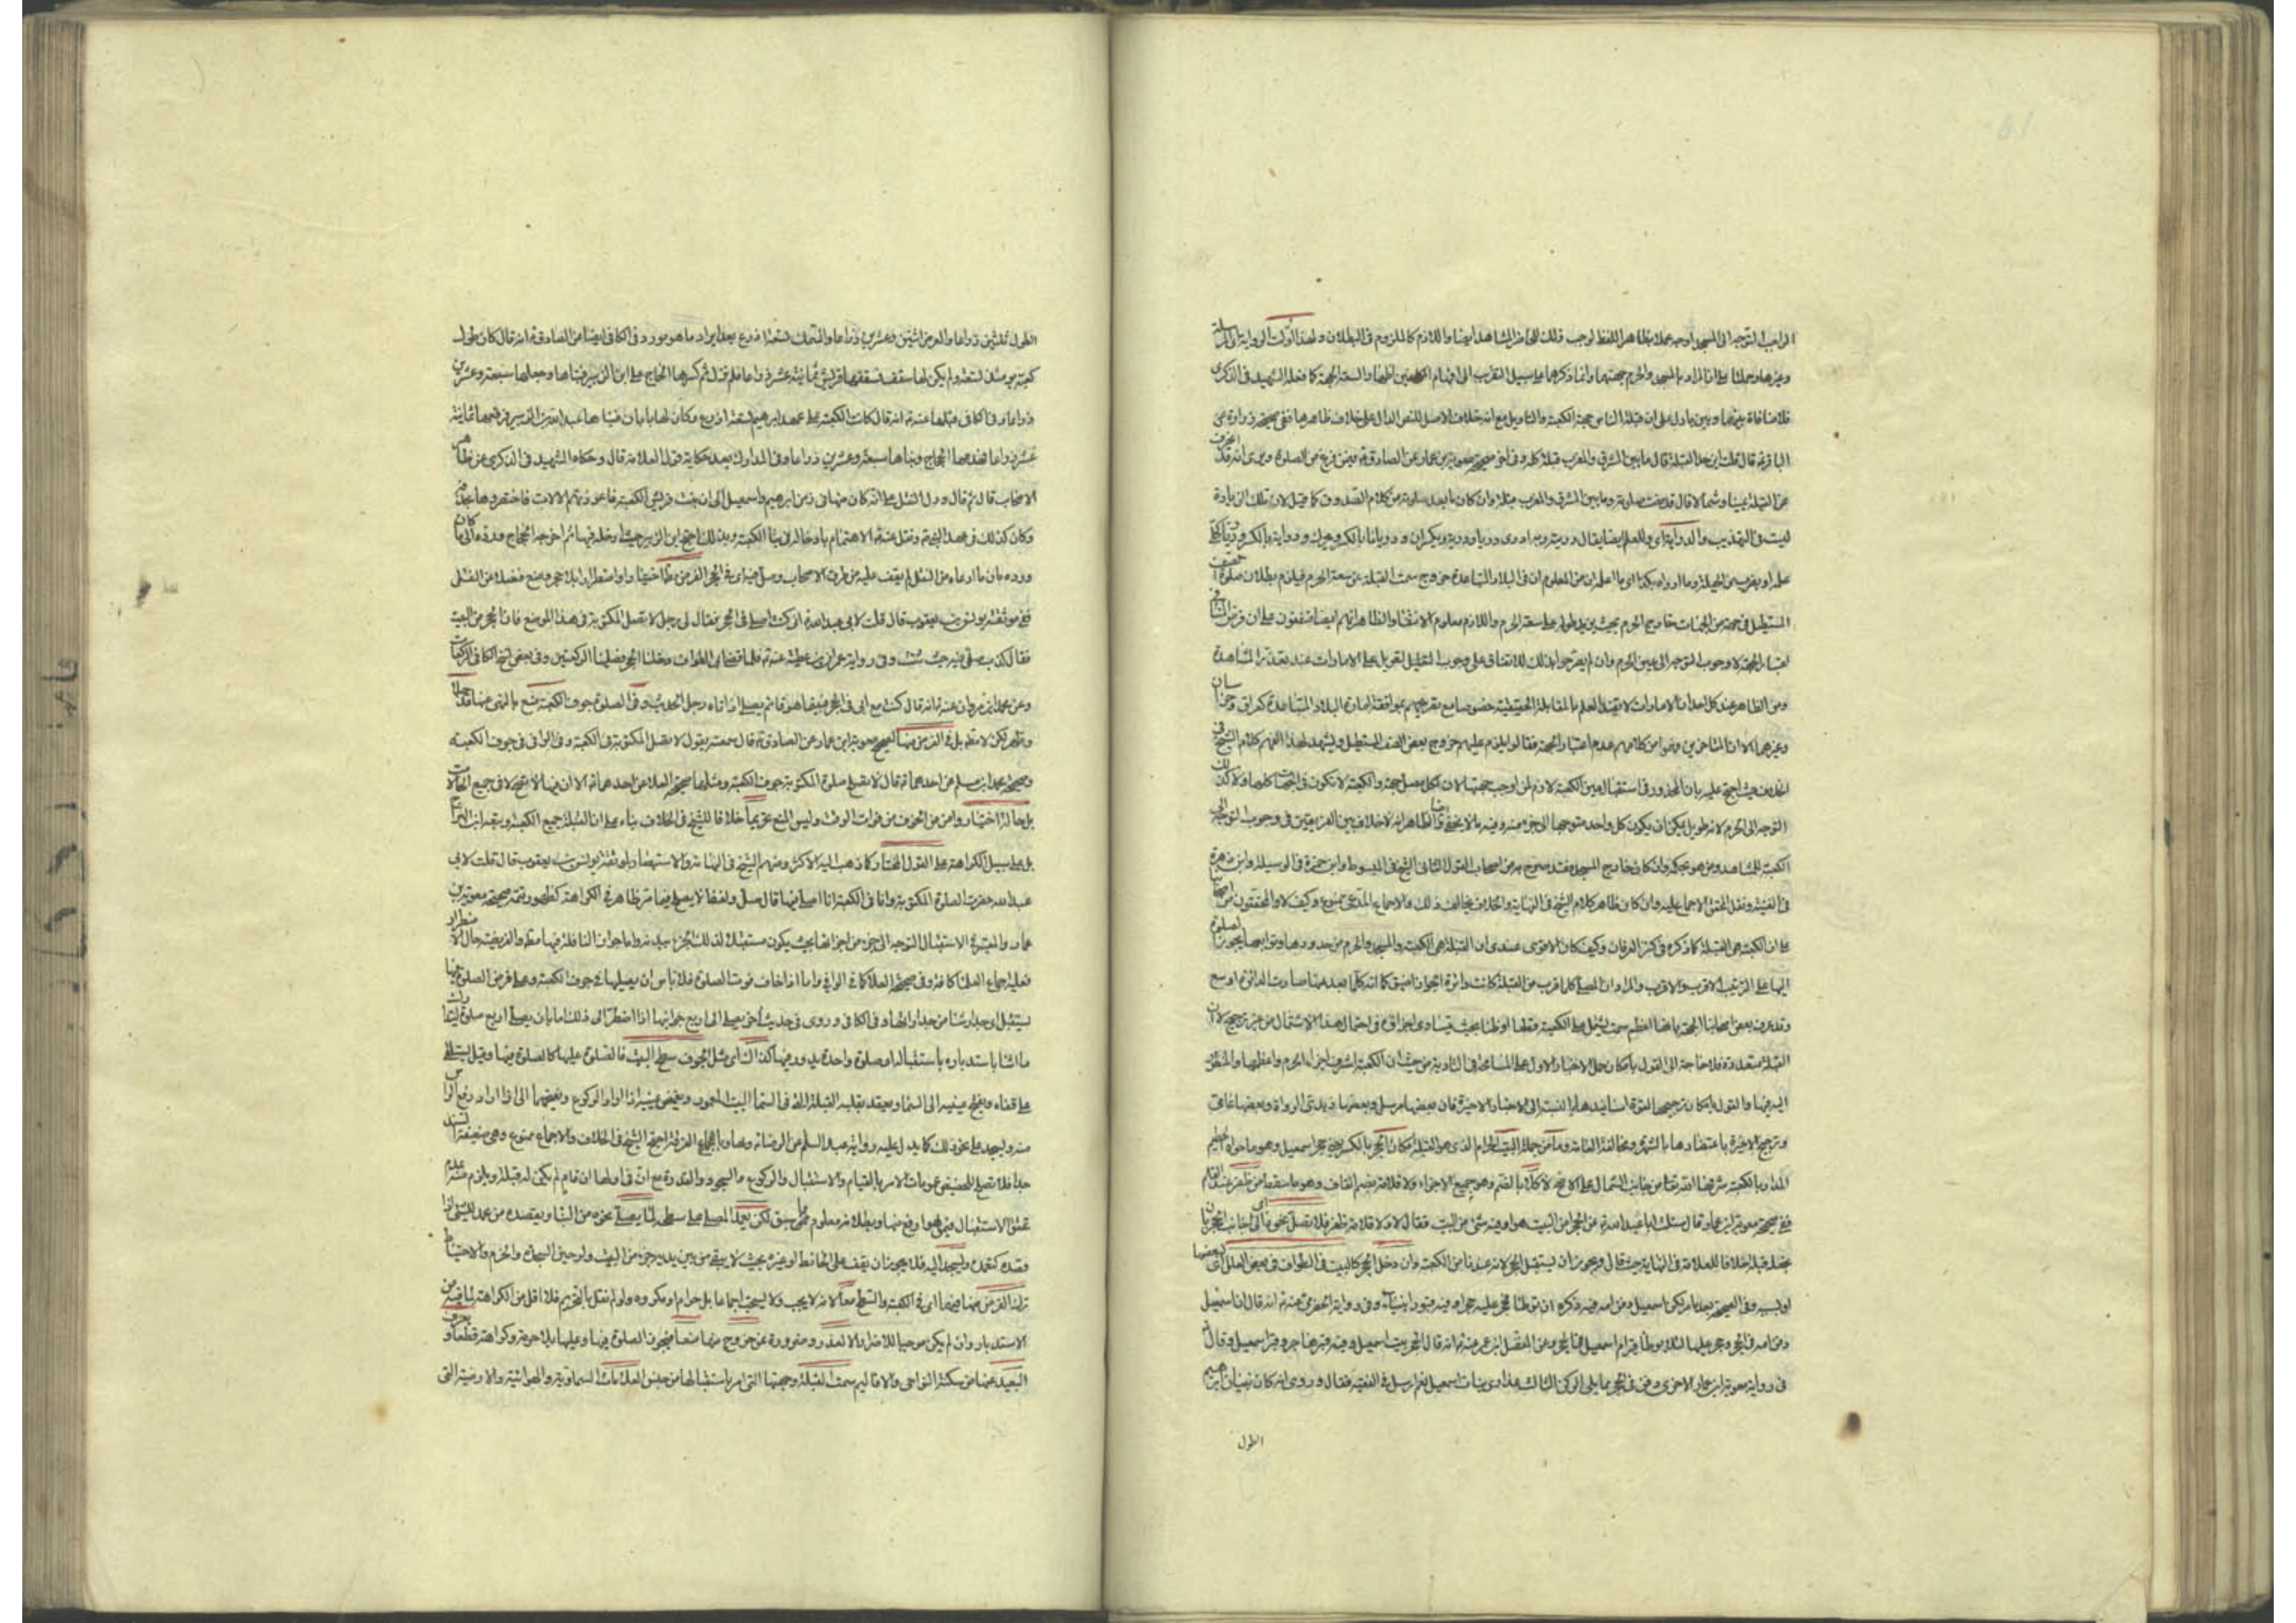 الواجب التوجه الى المسجد اوجه عملا بظاهر اللفظ لوجب ذلك للحاضر المشاهد ايضا واللازم كالملزوم فى البطلان
وغيرها وحملنا على ان المراد بالمسجد والحرم جهتهما وانما ذكرهما على سبيل التقريب الى افهام المكلفين اظهارا لسعة الجهة كما فعله الشهيد فى الذكرى
فلا منافاة بينهما وبين ما دل على ان قبلة الناس جهة الكعبة والتاويل مع انه خلاف الاصل للنص الدال على خلاف ظاهرها ففى صحيحة زرارة عن
الباقر قال قلت اين حد القبلة قال ما بين المشرق والمغرب قبلة كله وفى اخرى صحيحة معوية بن عمار عن الصادق فيمن فرغ من الصلوة ويرى انه قد انحرف
عن القبلة يمينا وشمالا قال قد مضت صلوته وما بين المشرق والمغرب قبلة وان كان ما بعد صلوته من كلام الصدوق كما قيل لان تلك الزيادة
ليست فى التهذيب والدراية اى العلم ايضا يقال دريته وبه ادرى دريا ودرية ويكسران ودريانا بالكسر ويحرك ودراية بالكسر
علمه او بضرب من الحيلة وما ادراه بكذا اى ما اعلمه ان من المعلوم ان فى البلاد المتباعدة خروج سمت القبلة عن سعة الحرم فيلزم بطلان صلوة الصف
المستطيل فى جهة من الجهات خارج الحرم بحيث يزيد طوله على سعة الحرم واللازم معلوم الانتفاء والظاهر انهم ايضا متفقون على ان فرض النائى
اعتبار الجهة لا وجوب التوجه الى عين الحرم وان لم يصرحوا بذلك للاتفاق على وجوب التعويل على الامارات عند تعذر المشاهدة
ومن الظاهر عند كل احد ان الامارات لا تفيد العلم بالمقابلة الحقيقية خصوصا مع تصريحهم بموافقة امارة البلاد المتباعدة كعراق وخراسان
وغيرهما الا ان المتاخرين فهموا من كلامهم عدم اعتبار الجهة فقالوا يلزم عليهم خروج بعض الصف المستطيل ويشهد لهذا الفهم كلام الشيخ فى
الخلاف حيث احتج عليه بان المحذور فى استقبال عين الكعبة لازم لمن اوجب جهتها لان لكل مصل جهة والكعبة لا تكون فى الجهات كلها ولا كذلك
التوجه الى الحرم لانه طويل يمكن ان يكون كل واحد متوجها الى جزء منه وفيه ما لا يخفى والظاهر انه لا خلاف بين الفريقين فى وجوب التوجه الى
الكعبة للمشاهد ومن هو بحكمه وان كان خارج المسجد فقد صرح به من اصحاب القول الثانى الشيخ فى المبسوط وابن حمزة فى الوسيلة وابن زهرة
فى الغنية ونقل المحقق الاجماع عليه وان كان ظاهر كلام الشيخ فى النهاية والخلاف يخالف ذلك والاجماع المدعى ممنوع وكيف لا والمحققون من اصحابنا
على ان الكعبة هى القبلة كما ذكره فى كنز العرفان وكيف كان الاقوى عندى ان القبلة هى الكعبة والمسجد والحرم من حدودها وتوابعها يجوز الصلوة
اليها على الترتيب الاقرب والاقرب والمراد ان المصلى كلما قرب من القبلة كانت دائرة الجواز اضيق كما انه كلما بعد عنها صارت الدائرة اوسع
وقد عرف بعض اصحابنا الجهة بانها اعظم سمت يشتمل على الكعبة قطعا او ظنا بحيث يتساوى اجزاؤه فى احتمال هذا الاشتمال من غير ترجيح لان
القبلة متعددة فلا حاجة الى القول بامكان حمل الاخبار الاول على المسامحة فى التادية من حيث ان الكعبة اشرف اجزاء الحرم واعظمها والمنظور
اليه فيها والقول بامكان ترجيحها لقوة اسانيدها بالنسبة الى الاخبار الاخيرة فان بعضها مرسل وبعضها زيدى الرواة وبعضها عامى
وترجيح الاخيرة باعتضادها بالشهرة ومخالفة العامة وما من جملة البيت الحرام الذى هو القبلة مكانا الحجر بالكسر يعنى حجر اسمعيل وهو ما حواه الحطيم
المدار بالكعبة شرفها الله تعالى من جانب الشمال على الاصح لا كلا بالضم وهو جميع الاجزاء ولا قلامة بضم القاف وهو ما سقط من ظفر عند القلم
ففى صحيحة معوية ابن عمار قال سئلت ابا عبد الله عن الحجر امن البيت هو او فيه شئ من البيت فقال لا ولا قلامة ظفر فلا تصل نحوه اى الى جانب الحجر بان
تجعله قبلة خلافا للعلامة فى النهاية حيث قال ويجوز ان يستقبل الحجر لانه عندنا من الكعبة وان دخل الحجر كالبيت فى الطواف فى بعض العلل
اوبسببه وفى الصحيحة بعد ما مر لكن اسمعيل دفن امه فيه فكره ان توطا فحجر عليه حجرا وفيه قبور انبياء وفى رواية اخرى عنه انه قال ان اسمعيل
دفن امه فى الحجر وحجر عليها لئلا يوطا قبر ام اسمعيل فى الحجر وعن المفضل بن عمر عنه انه قال الحجر بيت اسمعيل وفيه قبر هاجر وقبر اسمعيل وقال
فى رواية معوية ابن عمار الاخرى دفن فى الحجر مما يلى الركن الثالث عذارى بنات اسمعيل نعم ارسل فى الفقيه فقال وروى انه كان بنيان ابرهيم
الطول
الطول ثلثين ذراعا والعرض اثنين وعشرين ذراعا والسمك تسعة اذرع بعد ايراد ما هو مورد فى الكافى ايضا من الصادق انه قال كان طول
كعبة يومئذ تسعة ولم يكن لها سقف فسقفها قريش ثمانية عشر ذراعا فلم تزل ثم كسرها الحجاج على ابن الزبير فبناها وجعلها سبعة وعشرين
ذراعا وفى الكافى مثلها عنه انه قال كانت الكعبة على عهد ابرهيم تسعة اذرع وكان لها بابان فبناها عبد الله بن الزبير فرفعها ثمانية
عشر ذراعا فهدمها الحجاج وبناها سبعة وعشرين ذراعا وفى المدارك بعد حكاية قول العلامة قال وحكاه الشهيد فى الذكرى عن ظاهر
الاصحاب قال ثم قال ودل النقل على انه كان منها فى زمن ابرهيم واسمعيل الى ان بنت قريش الكعبة فاعوزتهم الالات فاختصروها بحذفه
وكان كذلك فى عهد النبى ونقل عنه الاهتمام بادخاله فى بناء الكعبة وبذلك احتج ابن الزبير حيث ادخله فيها ثم اخرجه الحجاج ورده الى ما كان
ورده بان ما ادعاه من النقل لم يقف عليه من طرق الاصحاب وصل فيه اى فى الحجر الفرض اختيارا واضطرارا بلا حرج ومنع فضلا عن النفل
ففى موثقة يونس بن يعقوب قال قلت لابى عبد الله انى كنت اصلى فى الحجر فقال لى رجل لا تصل المكتوبة فى هذا الموضع فان الحجر من البيت
فقال كذب صل فيه حيث شئت وفى رواية عمران بن عطية عنه فلما قضى ابى الطواف دخلنا الحجر فصلينا الركعتين وفى بعض نسخ الكافى الركعات
وعن محمد ابن مروان عنه انه قال كنت مع ابى فى الحجر فبينما هو قائم يصلى اذ اتاه رجل الحديث وفى الصلوة جوف الكعبة منع
لكن لا مط بل فى الفرض منها لصحيح معوية ابن عمار عن الصادق قال سمعته يقول لا تصل المكتوبة فى الكعبة وفى الوافى فى جوف الكعبة
وصحيحة محمد ابن مسلم عن احدهما قال لا تصلح صلوة المكتوبة جوف الكعبة ومثلها صحيحة العلا عن احدهما الا ان فيها لا تصح لا فى جميع الحالات
بل حالة اختيار وامن من الخوف من فوات الوقت وليس المنع تحريما خلافا للشيخ فى الخلاف بناء على ان القبلة جميع الكعبة وتبعه ابن البراج
بل على سبيل الكراهة على القول المختار كما ذهب اليه الاكثر ومنهم الشيخ فى النهاية والاستبصار لموثقة يونس بن يعقوب قال قلت لابى
عبد الله حضرت الصلوة المكتوبة وانا فى الكعبة افاصلى فيها قال صل ولفظ لا يصلح فيما مر ظاهر فى الكراهة كظهور تتمة صحيحة معوية بن
عمار والمعتبر فى الاستقبال التوجه الى جزء من اجزائها بحيث يكون مستقبلا لذلك الجزء ببدنه واما جواز النافلة فيها مط والفريضة حال الاضطرار
فعليه اجماع العلماء كافة وفى صحيحة العلا كما فى الوافى واما اذا خاف فوت الصلوة فلا باس ان يصليها فى جوف الكعبة وعلى فرض الصلوة فيها
يستقبل اى جدار شاء من جدرانها وفى الكافى وروى فى حديث اخر يصلى الى اربع جوانبها اذا اضطر الى ذلك اما بان يصلى اربع صلوات
ما شاء باستدباره باستقباله او صلوة واحدة يدور فيها كذلك اى مثل الجوف سطح البيت فالصلوة عليها كالصلوة فيها وقيل يستلقى
على قفاه ويفتح عينيه الى السماء ويعقد بقلبه القبلة التى فى السماء البيت المعمور ويغمض عينيه اذا اراد الركوع ويفتحهما الى اذا اراد رفع الراس
منه ويسجد على نحو ذلك كما يدل عليه رواية عبد السلام عن الرضا وبها وباجماع الفرقة احتج الشيخ فى الخلاف والاجماع ممنوع وهى ضعيفة السند
جدا فلا تصلح لتخصيص عمومات الامر بالقيام والاستقبال والركوع والسجود والقدرة مع ان فى اولها ان قام لم يكن له قبلة ويلزم منه عدم
تحقق الاستقبال فيما هو ارفع منها وبطلانه معلوم مما سبق لكن بعد المصلى على سطحه لما يصلى نحوه من البناء ويقصده من عمد للشئ اذا
قصده كتعمده وليسجد اليه فلا يجوز ان يقف على الحائط او غيره بحيث لا يبقى من بين يديه جزء من البيت ولو حين السجدة والحزم والاحتياط
ترك الفرض منهما فيهما اى فى الكعبة والسطح معا لانه لا يجب ولا يستحب اجماعا بل حرام او مكروه ولو لم نقل بالتحريم فلا اقل من الكراهة لما فيه من
الاستدبار وان لم يكن موجبا للاضرار الا لعذر وضرورة عن خروج منها فيجوز الصلوة فيها وعليها بلا حرمة وكراهة قطعا
البعيد عنها من سكنة النواحى والاقاليم سمت القبلة وجهتها التى امر باستقبالها من جنس العلامات السماوية والهوائية والارضية التى